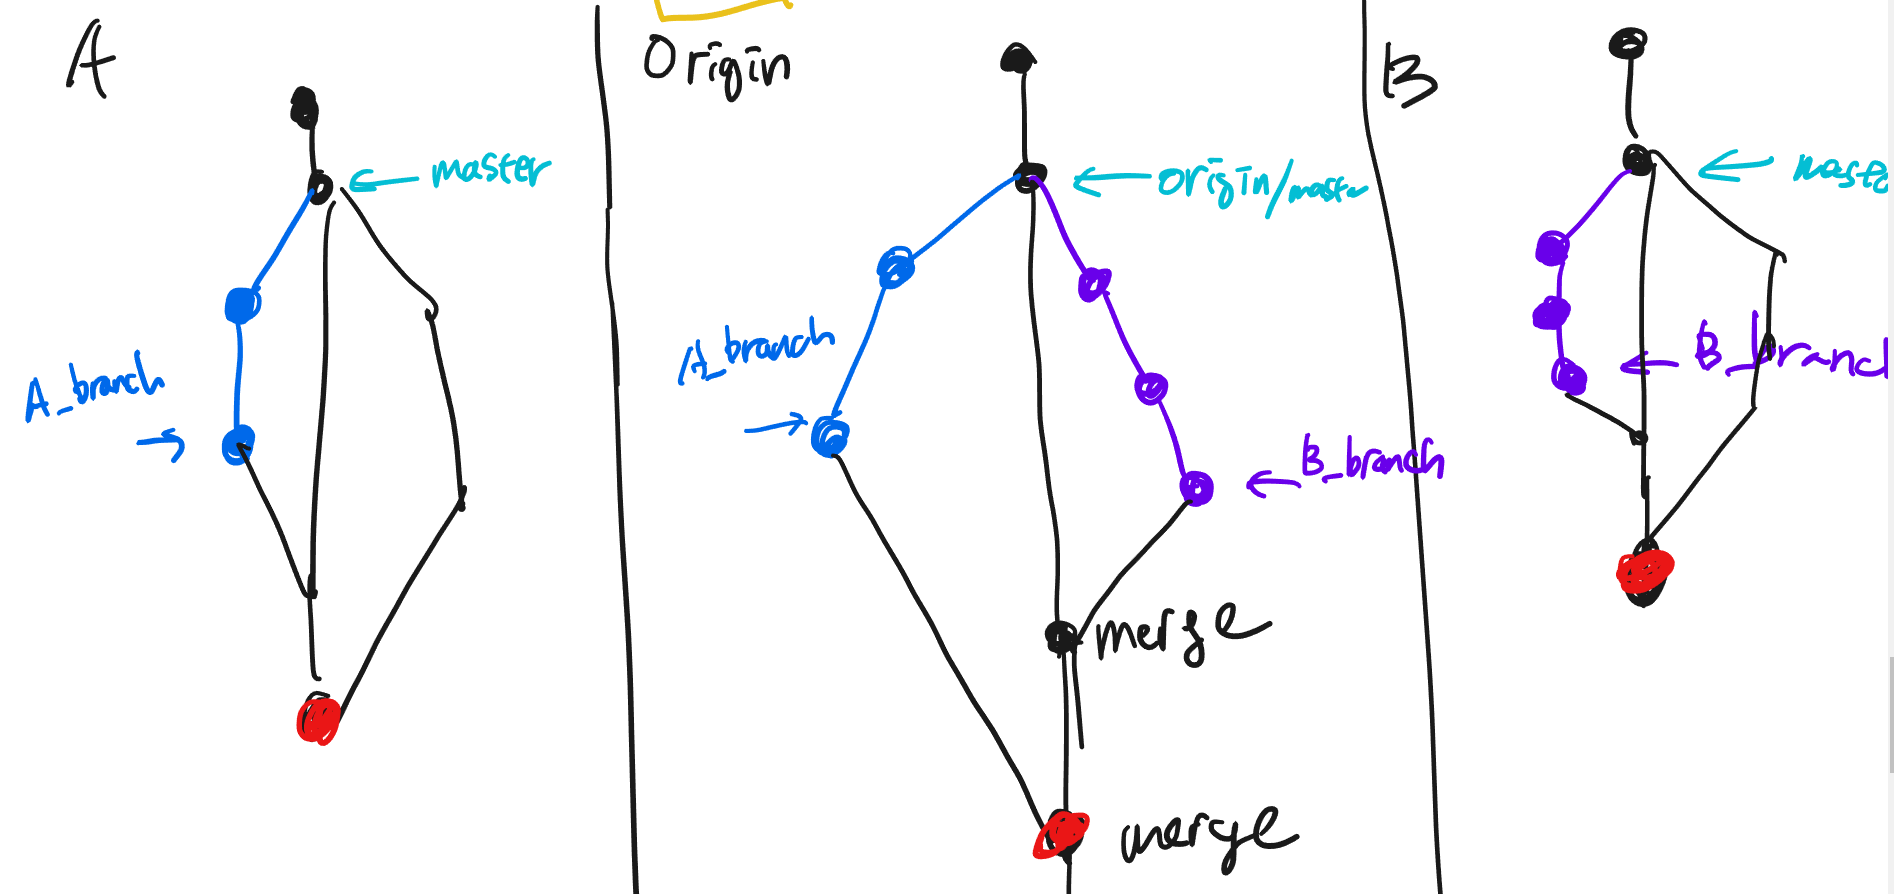 A
master
A_branch
Origin
origin/maste
A_branch
B_branch
merge
merge
B
maste
B_branch